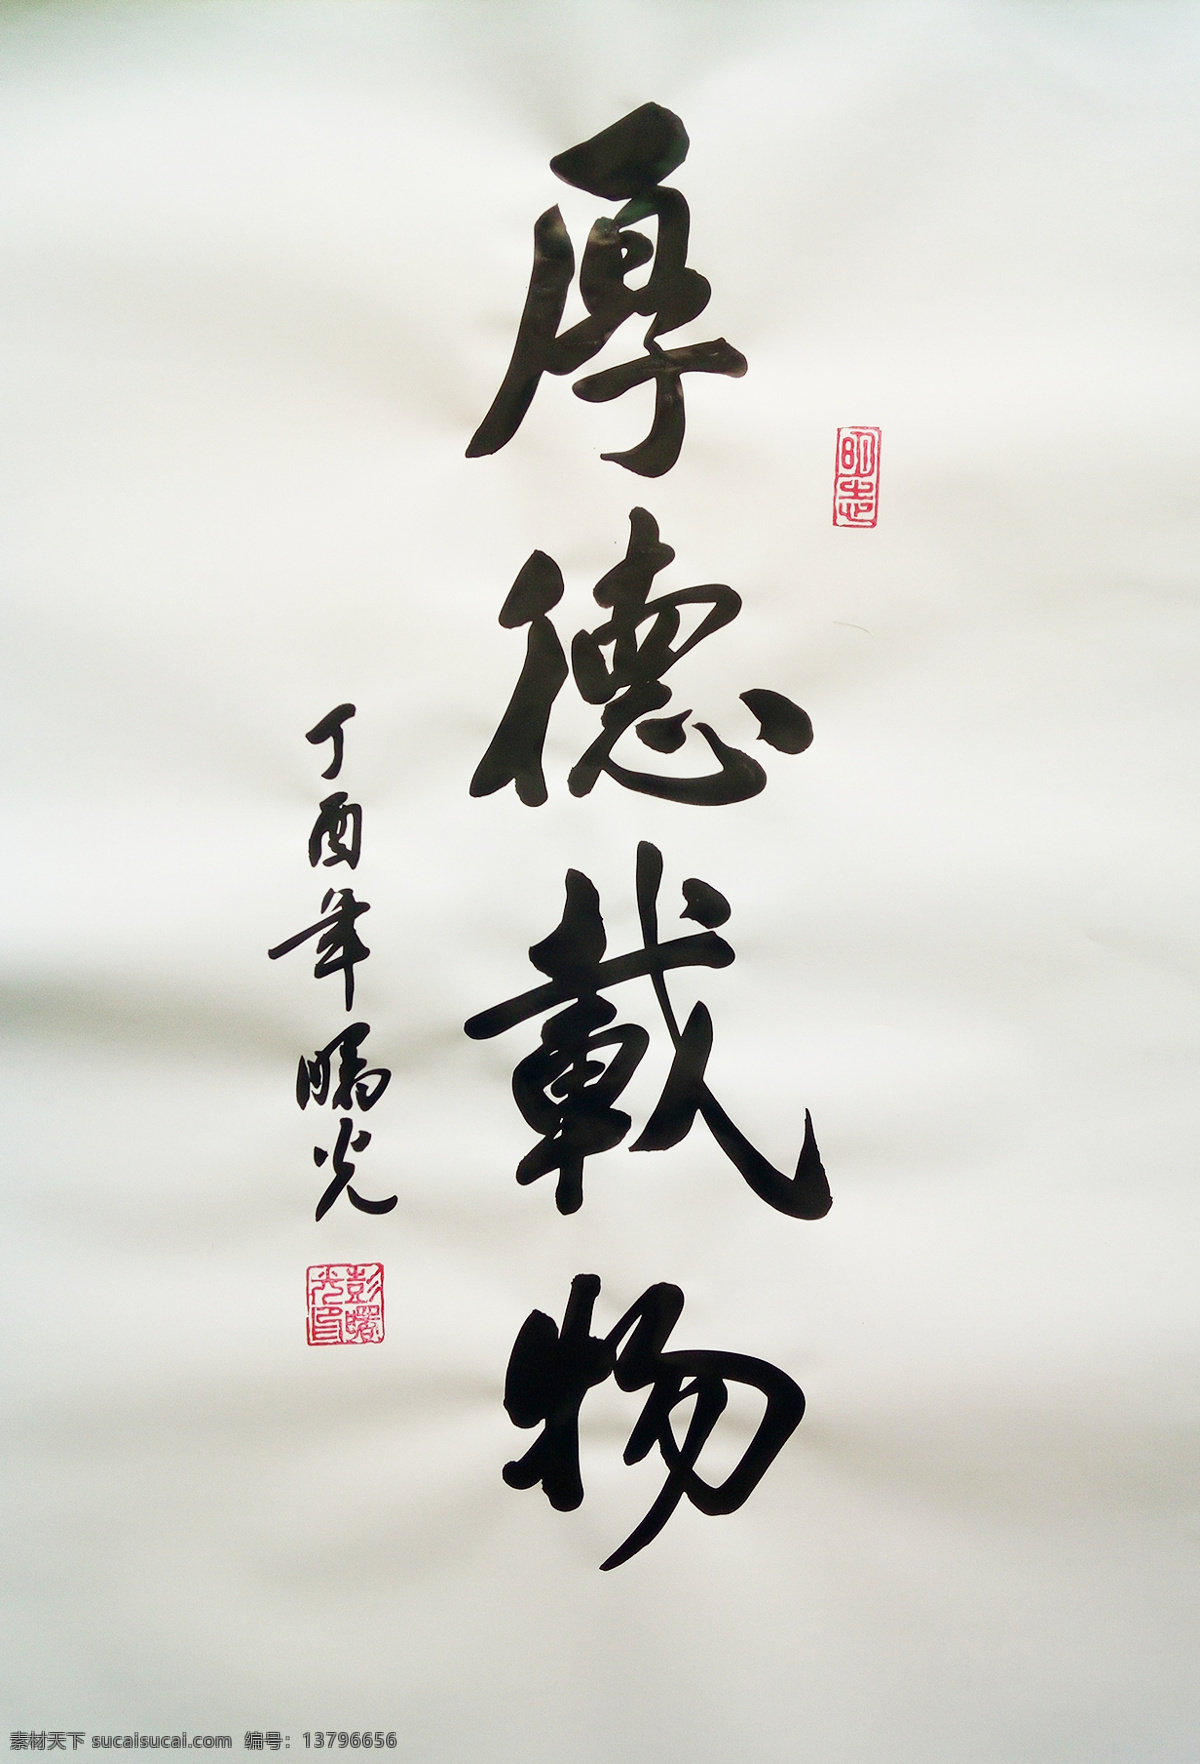 厚德载物
明志
丁酉年曙光
彭曙光印
素材天下 sucaisucai.com 编号：13796656